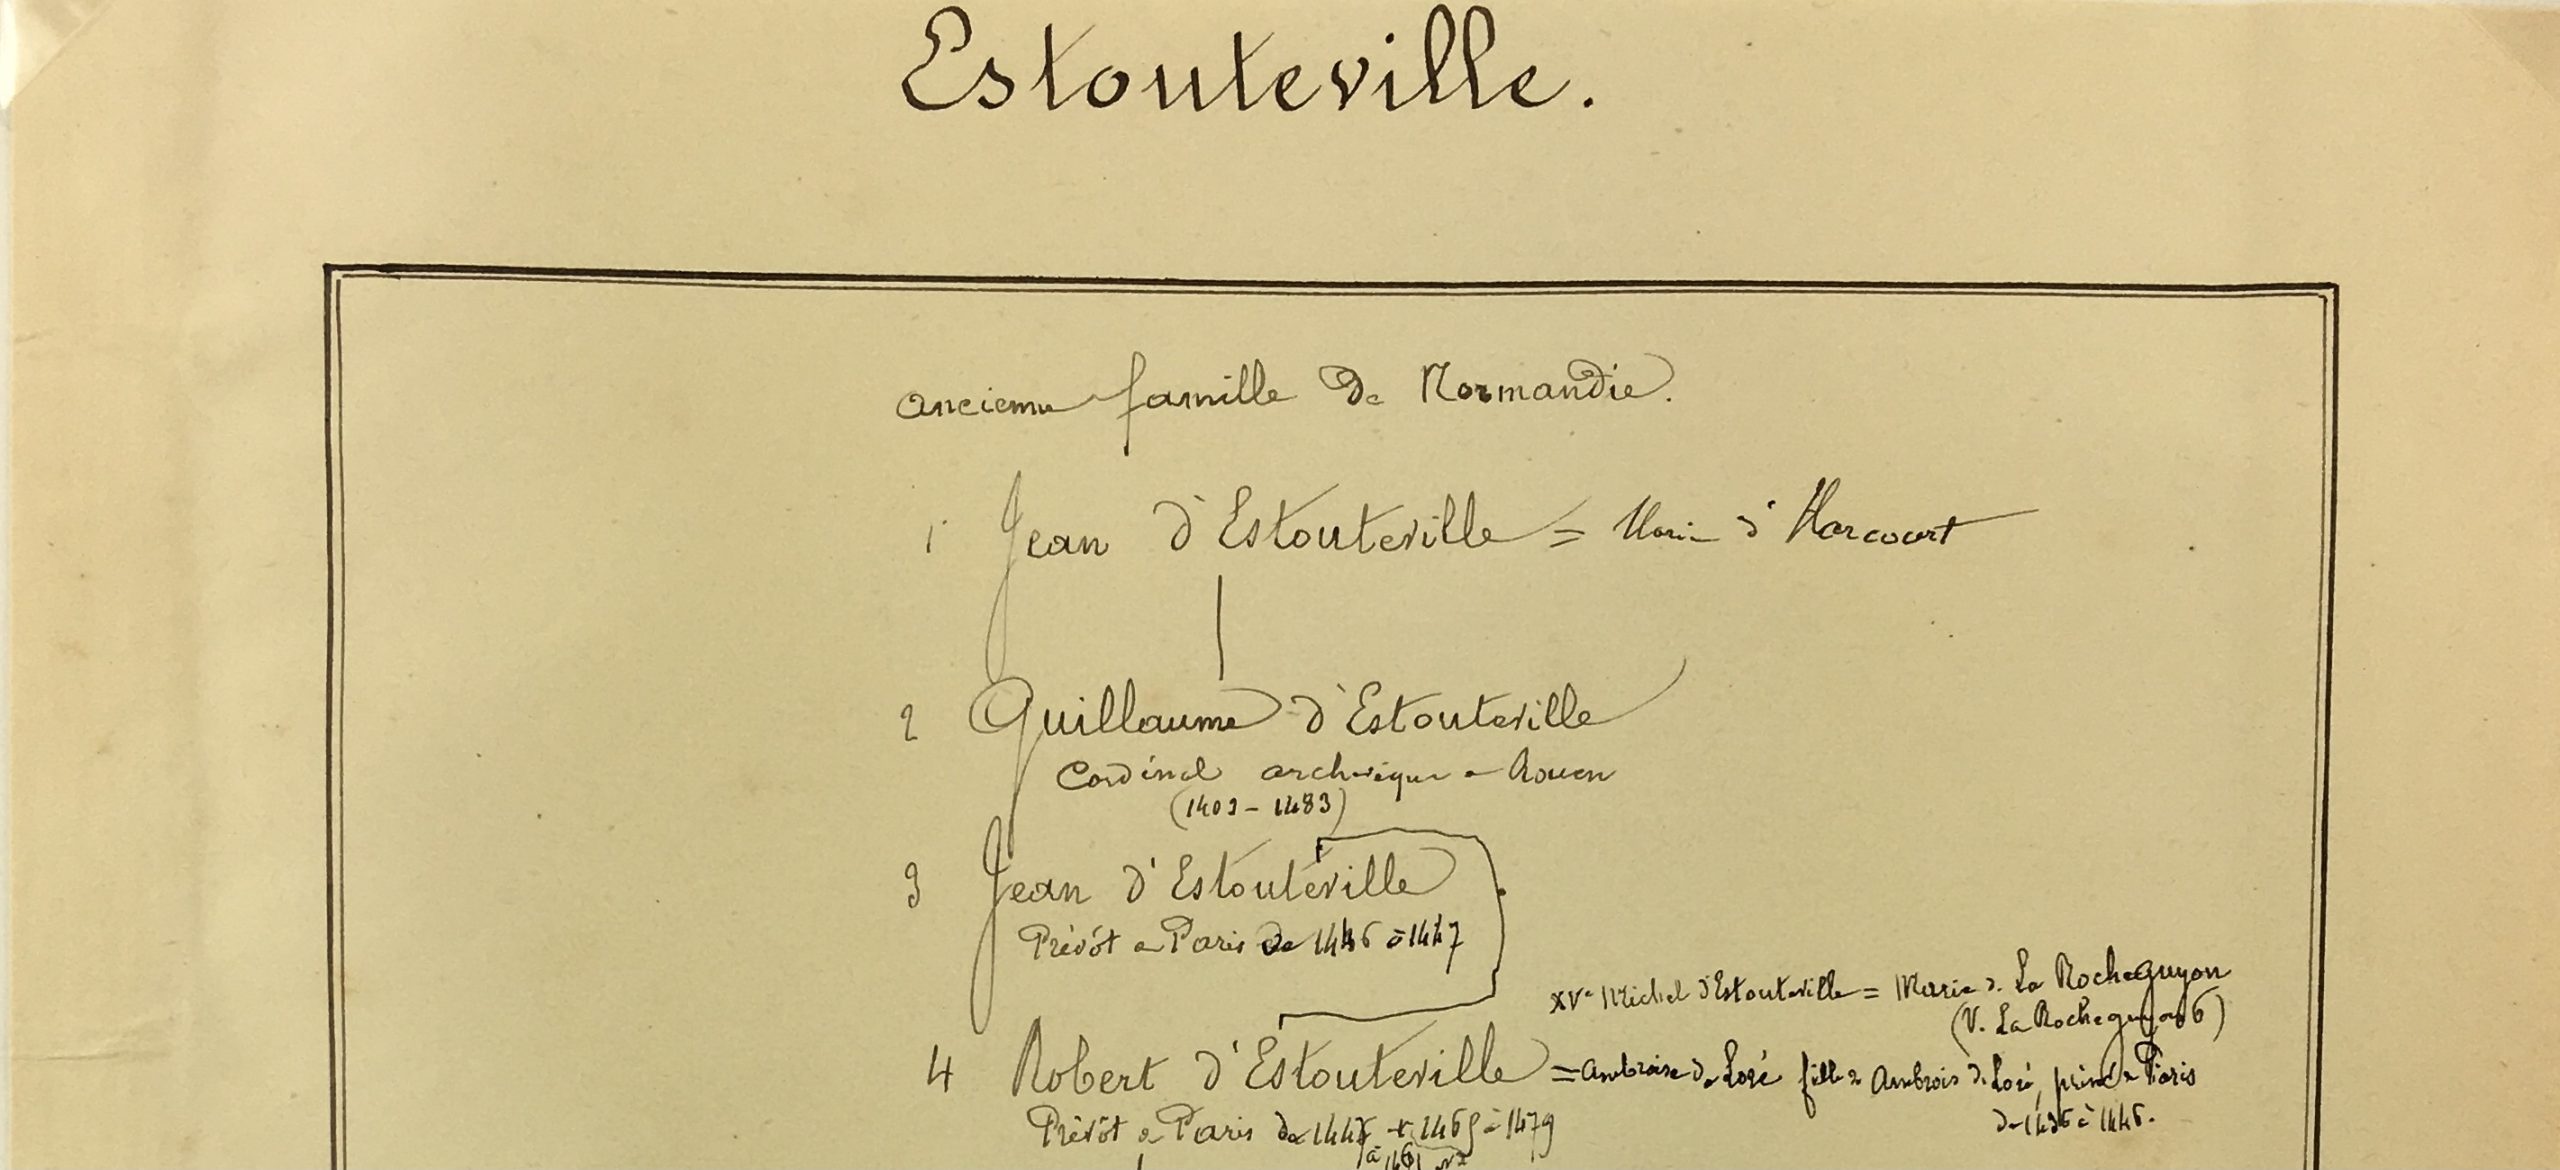 Estouteville.
ancienne famille de Normandie.
1 Jean d'Estouteville = Marie d'Harcourt
2 Guillaume d'Estouteville
Cardinal archevêque de Rouen
(1403 - 1483)
3 Jean d'Estouteville
Prévôt de Paris de 1446 à 1447
XVe Michel d'Estouteville = Marie de La Rocheguyon
(V. La Rocheguyon 6)
4 Robert d'Estouteville = Ambroise de Loré fille de Ambrois de Loré, prévôt de Paris
de 1436 à 1446.
Prévôt de Paris de 1447 + 1465 à 1479
à 1461